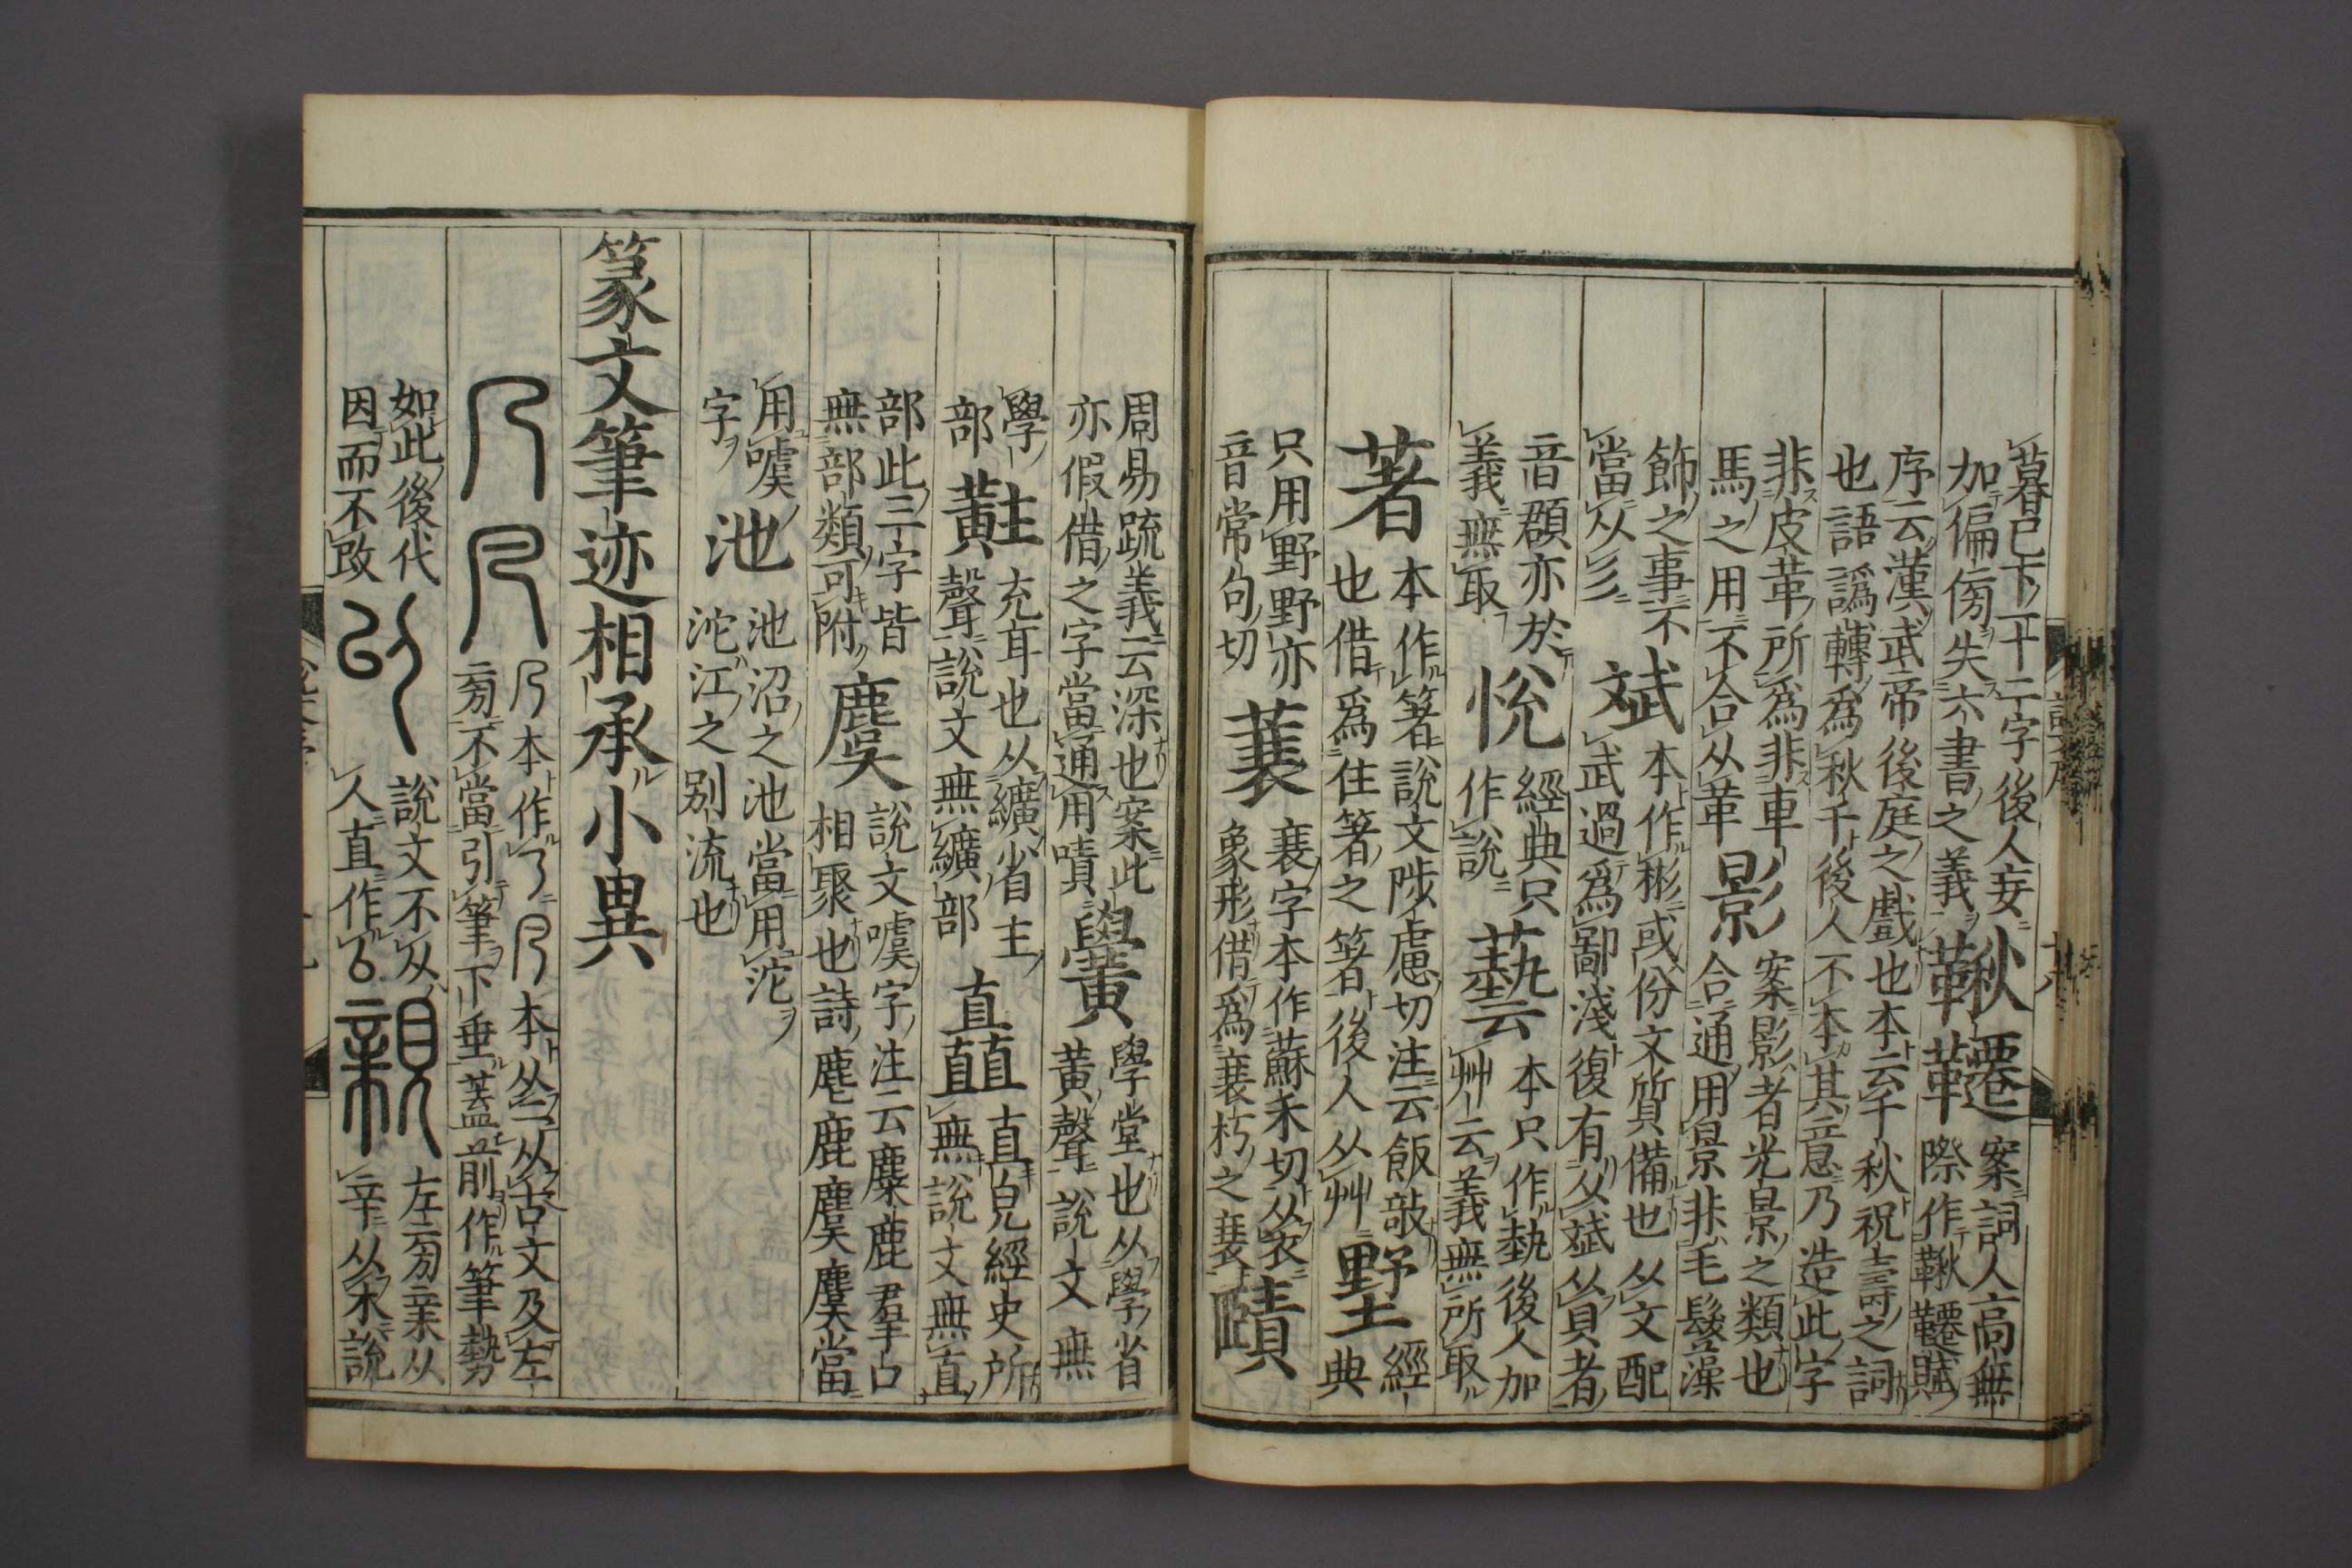 暮已下一十二字後人妄
加偏傍失六書之義
鞦韆
案詞人高無
際作鞦韆賦
序云漢武帝後庭之戲也本云千秋祝壽之詞
也語譌轉爲秋千後人不本其意乃造此字
非皮革所爲非車
馬之用不合从革
影
案影者光景之類也
合通用景非毛髮藻
飾之事不
當从彡
斌
本作彬或份文質備也从文配
武過爲鄙淺復有从斌从貝者
音頵亦於
義無取
悅
經典只
作說
藝
本只作埶後人加
艸云義無所取
著
本作箸說文陟慮切注云飯敧
也借爲住箸之箸後人从艸
墅
經
典
只用野野亦
音常句切
蓑
衰字本作蘇禾切从衣
象形借爲衰朽之衰
賾
周易疏義云深也案此
亦假借之字當通用嘖
黌
學堂也从學省
黃聲說文無
學
部
黈
充耳也从纊省主
聲說文無纊部
矗
直皃經史所
無說文無直
部此三字皆
無部類可附
麌
說文噳字注云麋鹿羣口
相聚也詩麀鹿麌麌當
用噳
字
池
池沼之池當用沱
沱江之别流也
篆文筆迹相承小異
𠘧
本作
本从从古文及左
旁不當引筆下垂蓋前作筆勢
如此後代
因而不改
說文不从
人直作
親
左旁亲从
辛从木說